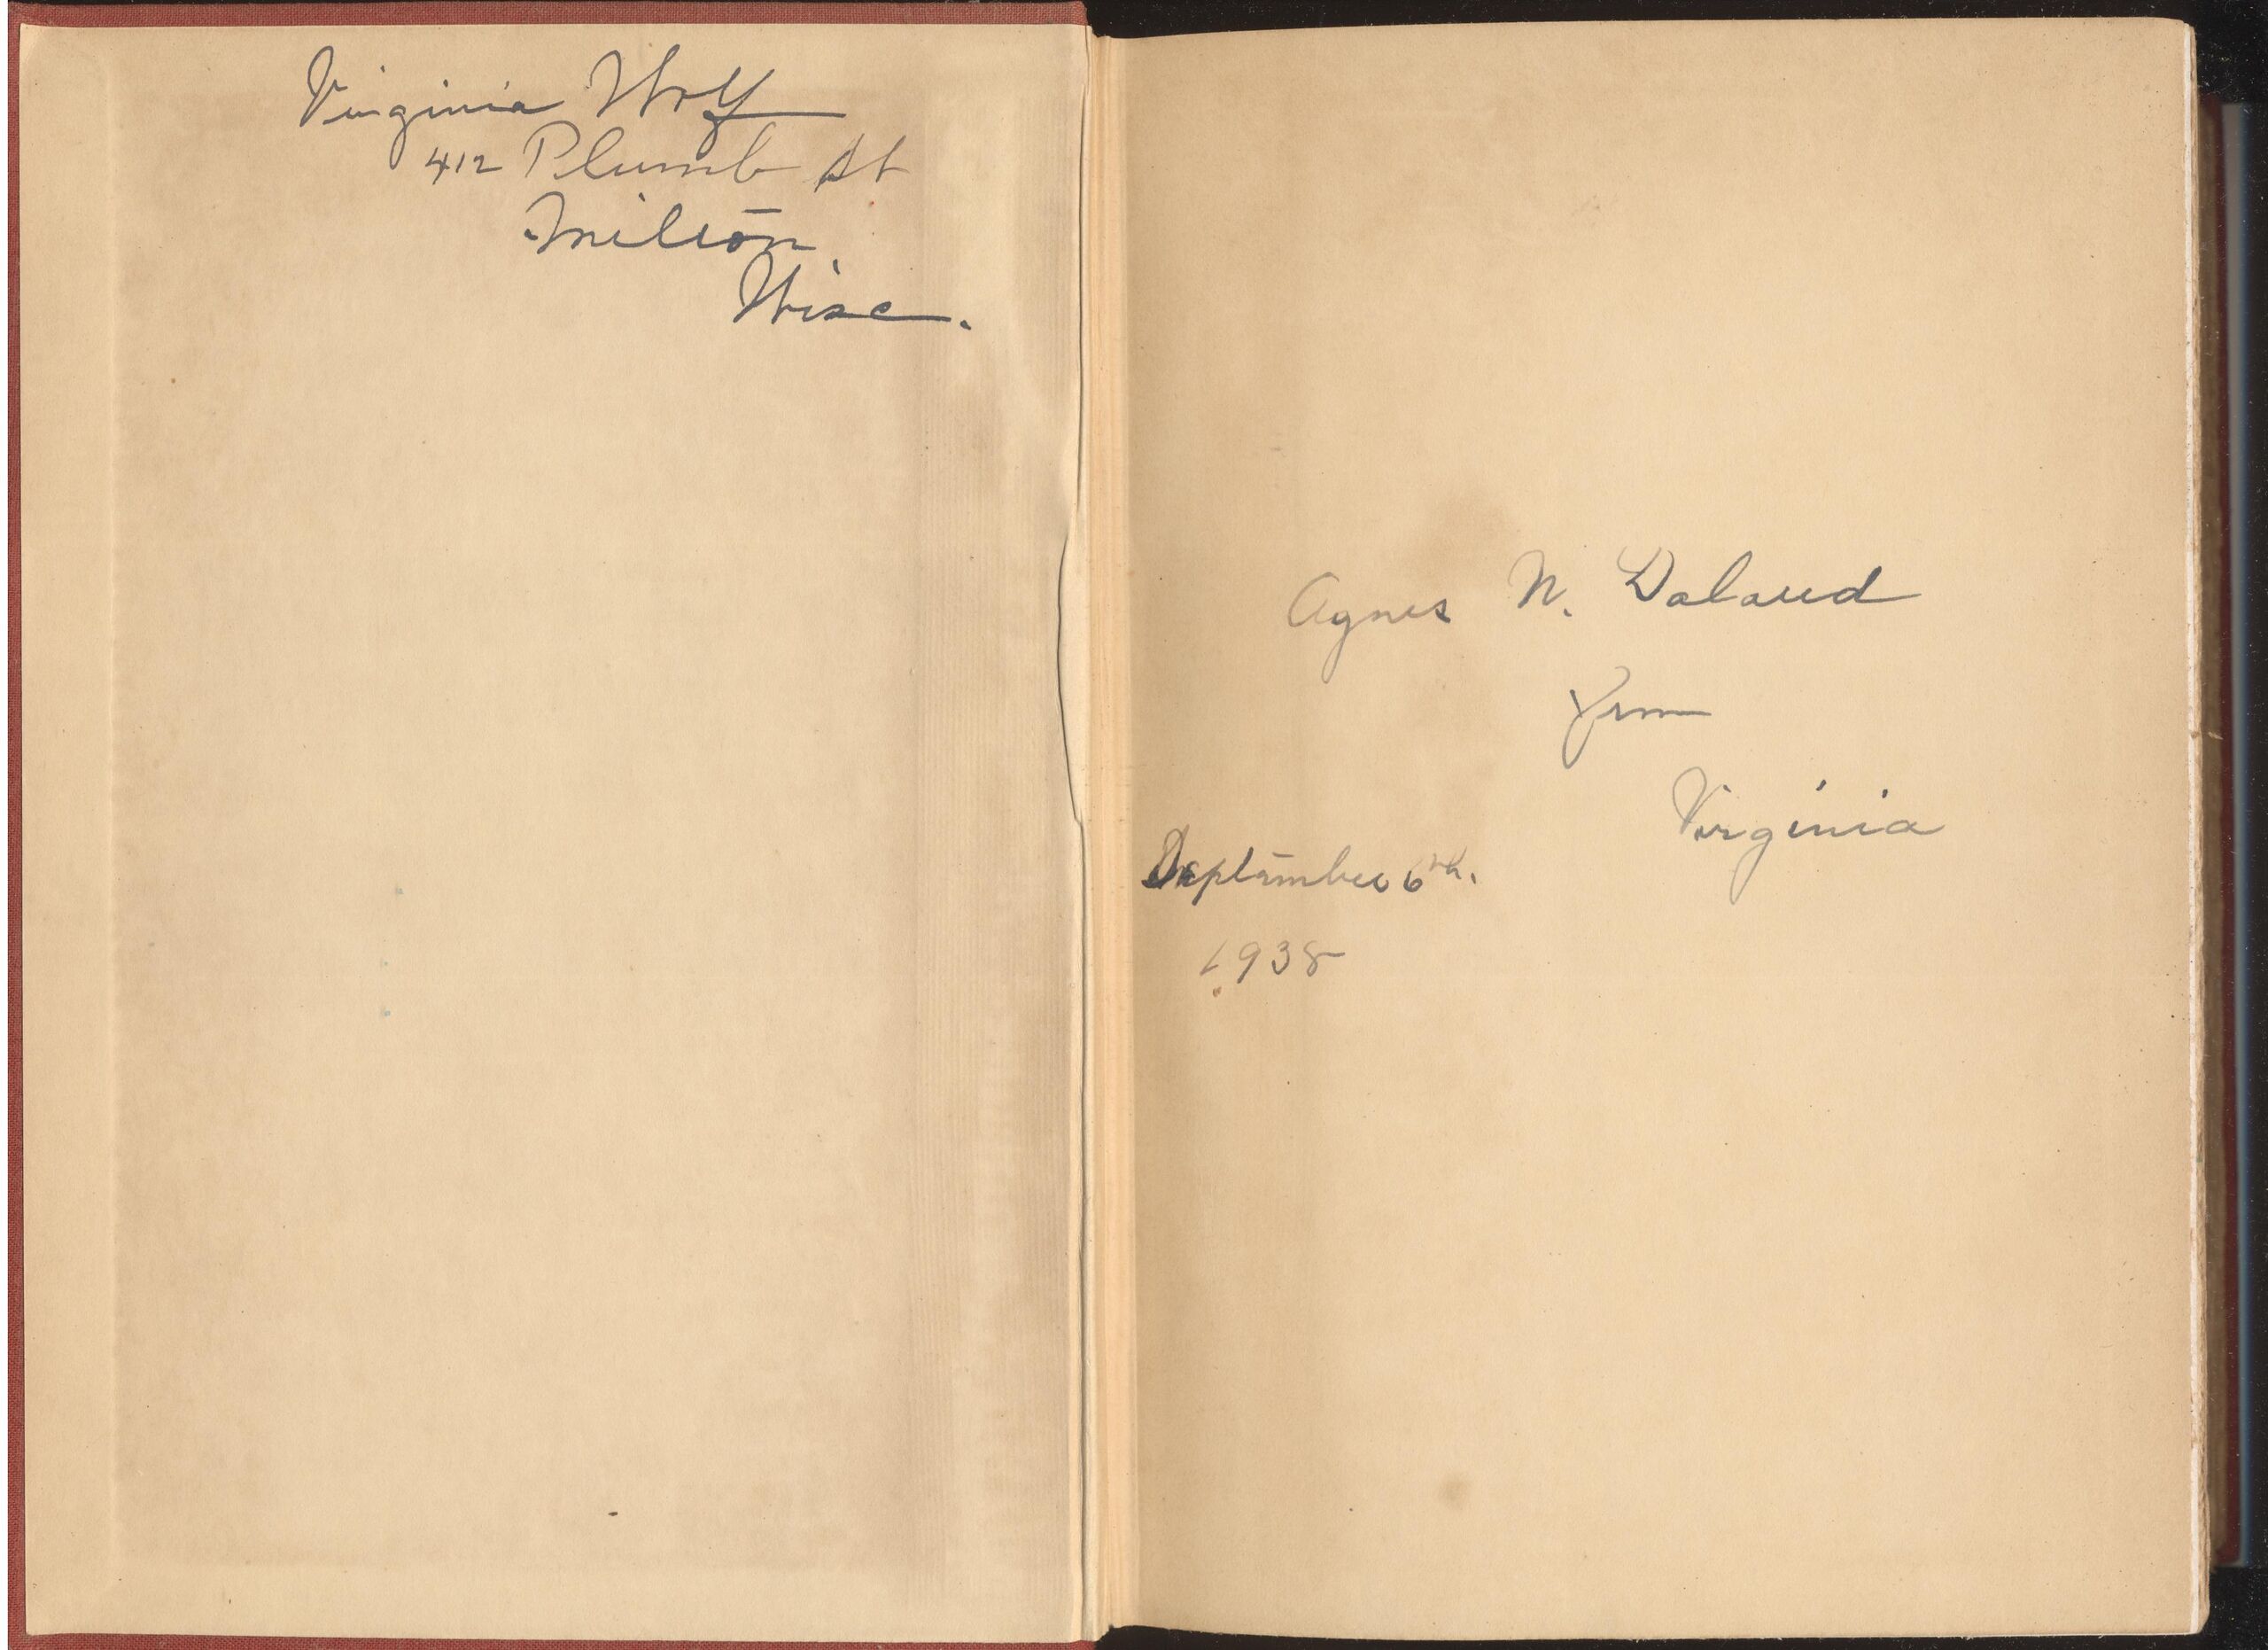 Virginia Wolf
412 Plumb St
Milton
Wisc.
Agnes N. Daland
From
Virginia
September 6th.
1938